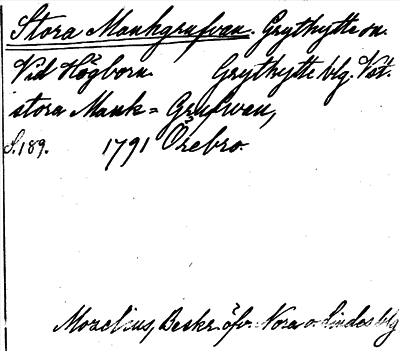 Stora Mankgrufvan. Grythyttе sn.
Vid Högborn. Grythytte blg. Väst.
stora Mank=Grufwan,
S. 189. 1791 Örebro.
Morelius, Beskr. öfv. Nora o. Lindes blg